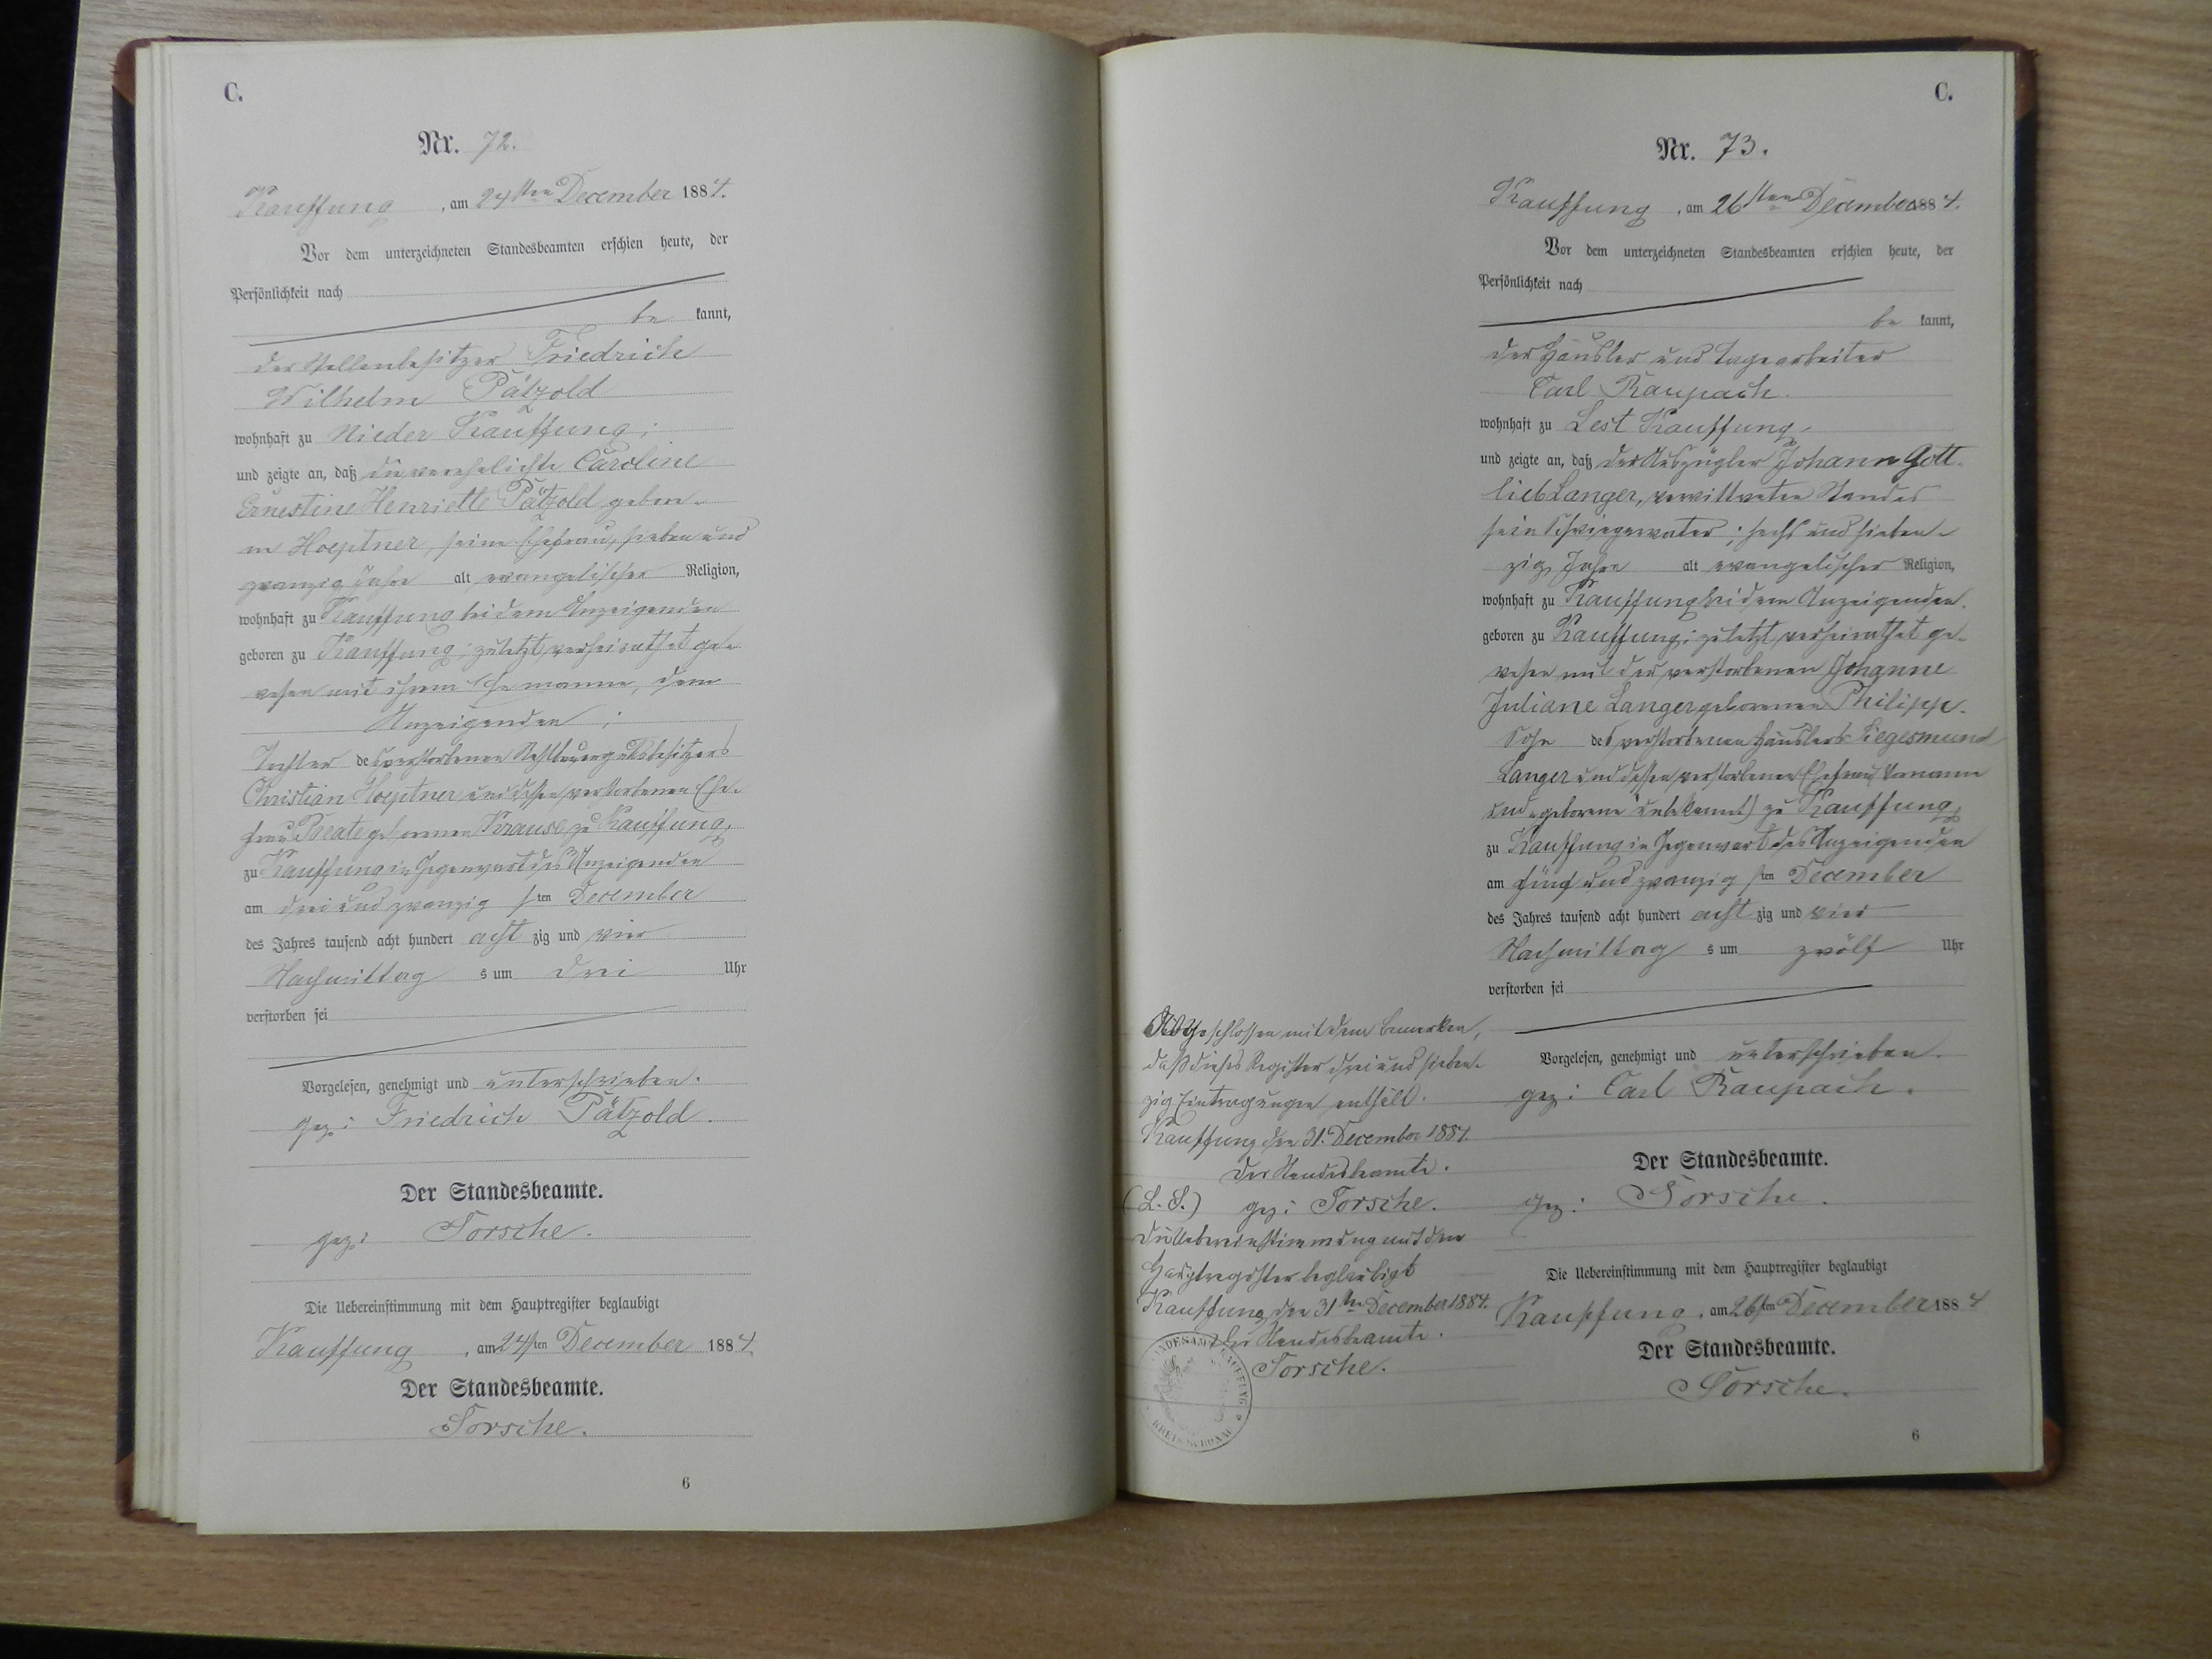 C.
Nr. 72.
Kauffung, am 24sten December 1884.
Vor dem unterzeichneten Standesbeamten erschien heute, der
Persönlichkeit nach
be kannt,
der Stellenbesitzer Friedrich
Wilhelm Pätzold
wohnhaft zu Nieder Kauffung;
und zeigte an, daß die verehelichte Caroline
Ernestine Henriette Pätzold gebore-
ne Hoeptner, seine Ehefrau, sieben und
zwanzig Jahre alt evangelischer Religion,
wohnhaft zu Kauffung bei dem Anzeigenden
geboren zu Kauffung; zuletzt verheirathet ge-
wesen mit ihrem Ehemanne, dem
Anzeigenden;
Tochter des verstorbenen Restbauergutsbesitzers
Christian Hoeptner und dessen verstorbenen Ehe-
frau Beate geborenen Krause zu Kauffung,
zu Kauffung in Gegenwart des Anzeigenden
am drei und zwanzig sten December
des Jahres tausend acht hundert acht zig und vier
Nachmittag s um drei Uhr
verstorben sei
Vorgelesen, genehmigt und unterschrieben.
gez: Friedrich Pätzold.
Der Standesbeamte.
gez: Torsche.
Die Uebereinstimmung mit dem Hauptregister beglaubigt
Kauffung, am 24sten December 1884.
Der Standesbeamte.
Torsche.
6
C.
Nr. 73.
Kauffung, am 26sten December 1884.
Vor dem unterzeichneten Standesbeamten erschien heute, der
Persönlichkeit nach
be kannt,
der Häusler und Tagearbeiter
Carl Raupach.
wohnhaft zu Lest Kauffung,
und zeigte an, daß der Auszügler Johann Gott-
lieb Langer, verwittweten Standes
sein Schwiegervater; sechs und sieben-
zig Jahre alt evangelischer Religion,
wohnhaft zu Kauffung bei dem Anzeigenden.
geboren zu Kauffung; zuletzt verheirathet ge-
wesen mit der verstorbenen Johanne
Juliane Langer geborenen Philipp.
Sohn des verstorbenen Häuslers Siegesmund
Langer und dessen verstorbenen Ehefrau (Vorname
und geborene unbekannt) zu Kauffung,
zu Kauffung in Gegenwart des Anzeigenden
am fünf und zwanzig sten December
des Jahres tausend acht hundert acht zig und vier
Nachmittag s um zwölf Uhr
verstorben sei
Vorgelesen, genehmigt und unterschrieben.
gez: Carl Raupach.
Der Standesbeamte.
gez: Torsche.
Die Uebereinstimmung mit dem Hauptregister beglaubigt
Kauffung, am 26sten December 1884
Der Standesbeamte.
Torsche.
6
Abgeschlossen mit dem Bemerken,
daß dieses Register drei und sieben-
zig Eintragungen enthält.
Kauffung den 31. December 1884.
Der Standesbeamte.
(L. S.) gez: Torsche.
Die Uebereinstimmung mit dem
Hauptregister beglaubigt
Kauffung, den 31ten December 1884.
Der Standesbeamte.
Torsche.
STANDESAMT KAUFFUNG
KREIS SCHÖNAU